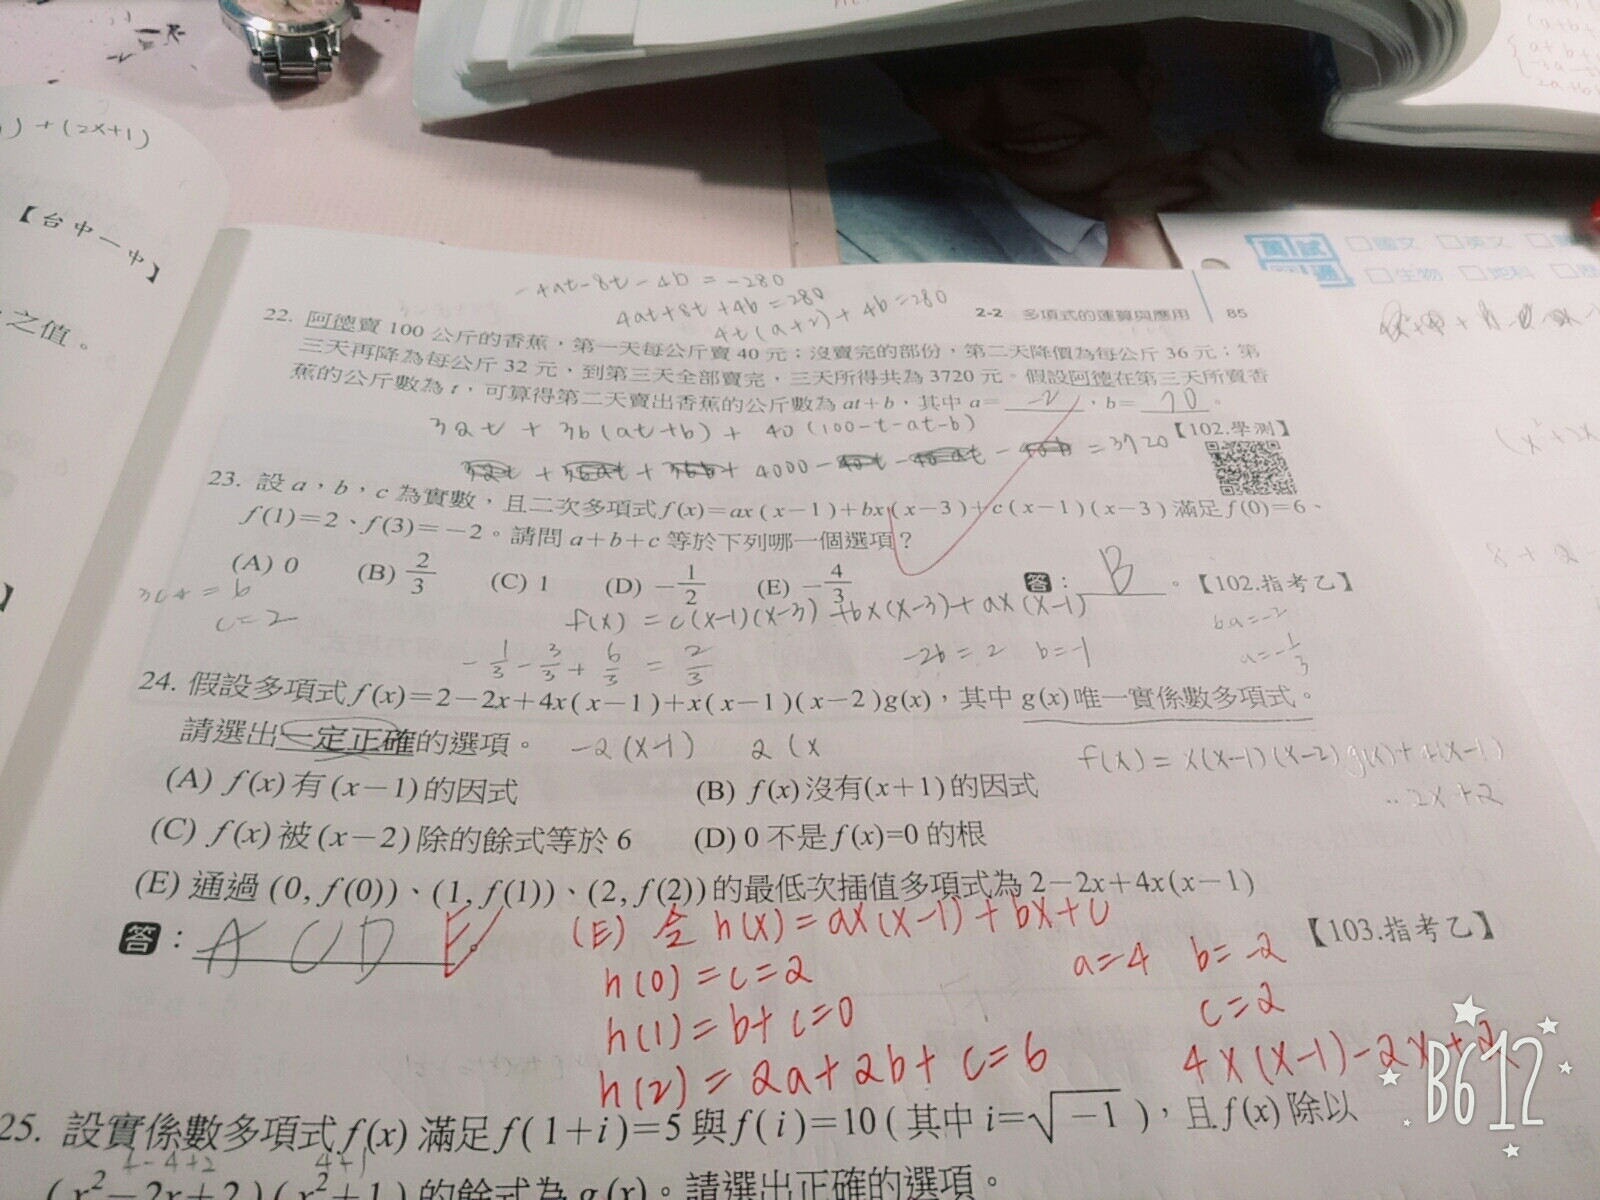 ) + (2x+1)
【台中一中】
之值。
-4at-8t-4b = -280
4at+8t+4b=280
4t(a+2)+4b=280
2-2 多項式的運算與應用 85
國文 英文
生物 地科
22. 阿德賣 100 公斤的香蕉，第一天每公斤賣 40 元；沒賣完的部份，第二天降價為每公斤 36 元；第
三天再降為每公斤 32 元，到第三天全部賣完，三天所得共為 3720 元。假設阿德在第三天所賣香
蕉的公斤數為 t，可算得第二天賣出香蕉的公斤數為 at+b，其中 a= -2 ，b= 70 。
【102.學測】
32t + 36(at+b) + 40(100-t-at-b)
32t + 36at + 36b + 4000 - 40t - 40at - 40b = 3720
23. 設 a，b，c 為實數，且二次多項式 f(x)=ax(x-1)+bx(x-3)+c(x-1)(x-3) 滿足 f(0)=6、
f(1)=2、f(3)=-2。請問 a+b+c 等於下列哪一個選項？
(A) 0 (B) 2/3 (C) 1 (D) -1/2 (E) -4/3
答： B 。【102.指考乙】
c=2
f(x) = c(x-1)(x-3) +bx(x-3)+ax(x-1)
6a=-2
-1/3 - 3/3 + 6/3 = 2/3
-2b = 2 b=-1
a=-1/3
24. 假設多項式 f(x)=2-2x+4x(x-1)+x(x-1)(x-2)g(x)，其中 g(x)唯一實係數多項式。
請選出一定正確的選項。
-2(x-1) 2(x
f(x) = x(x-1)(x-2)g(x)+4(x-1)
-2x+2
(A) f(x)有(x-1)的因式 (B) f(x)沒有(x+1)的因式
(C) f(x)被(x-2)除的餘式等於 6 (D) 0 不是 f(x)=0 的根
(E) 通過 (0, f(0))、(1, f(1))、(2, f(2))的最低次插值多項式為 2-2x+4x(x-1)
答： A C D E 。
【103.指考乙】
(E) 令 h(x) = ax(x-1)+bx+c
h(0) = c = 2
a=4 b=-2
h(1) = b+c=0
c=2
h(2) = 2a+2b+c=6
4x(x-1)-2x+2
B612
25. 設實係數多項式 f(x) 滿足 f(1+i)=5 與 f(i)=10 ( 其中 i=√-1 )，且 f(x) 除以
4-4+2 4+1
(x²-2x+2)(x²+1) 的餘式為 g(x)。請選出正確的選項。